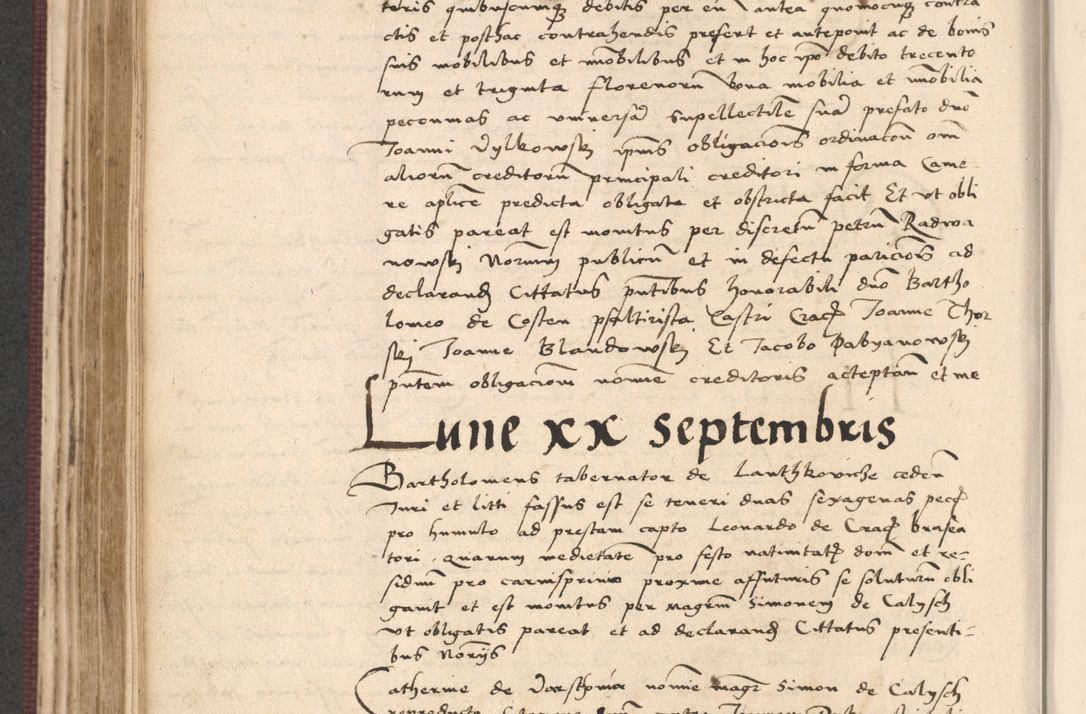 teris quibuscunq debitis per eu antea quomocuq contra
ctis et posthac contrahendis prefert et anteponit ac de bonis
suis mobilibus et imobilibus et in hoc ipo debito trecento
rum et triginta florenoru bona mobilia et imobilia
peccunias ac universa supellectile sua prefato dno
Joanni Vylkowskj ipius obligacionis ordinacon om
alioru creditoru principali creditori in forma Came-
re aplice predicta obligata et obstricta facit Et ut obli
gatis pareat est monitus per discretu petru Radwa
nowskj Norium publicu et in defectu paricionis ad
declarand Cittatus pntibus honorabili dno Bartho
lomeo de Costen psaltirista Castri Crac Joanne Thor
skj Joanne Blandowskj Et Jacobo Pabyanowskj
pntem obligaciom nomie creditoris acceptan et me
Lune xx septembris
Bartholomeus tabernator de Lanthkoviche ceden
Juri et litti fassus est se teneri duas sexagenas pecc
pro humulo ad prestam capto Leonardo de Crac brasea
tori quarum medietate pro festo nativitat domi et re-
siduu pro carnisprivio proxime affuturis se soluturu obli
gavit et est monitus per magrm Simonem de Calysch
ut obligatis pareat et ad declarand Cittatus presenti-
bus Noriis
Catherine de nomie magr Simon de Calysch